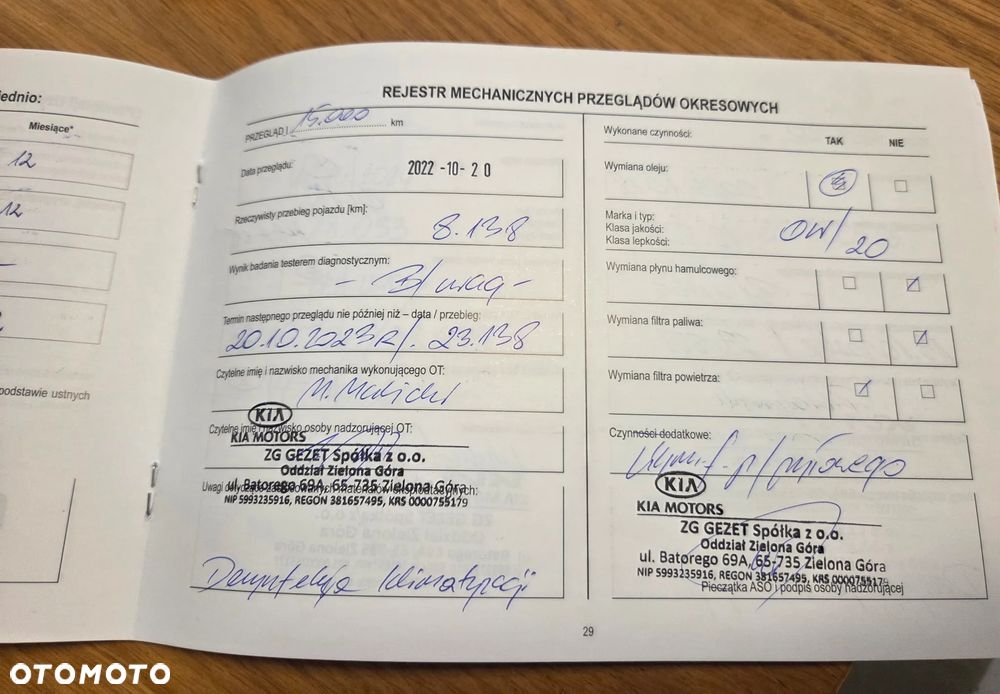 ednio:
Miesiące*
12
12
podstawie ustnych
REJESTR MECHANICZNYCH PRZEGLĄDÓW OKRESOWYCH
PRZEGLĄD I 15.000 km
Data przeglądu: 2022-10-20
Rzeczywisty przebieg pojazdu [km]:
8.138
Wynik badania testerem diagnostycznym:
- B/ uwag -
Termin następnego przeglądu nie później niż – data / przebieg:
20.10.2023r/. 23.138
Czytelne imię i nazwisko mechanika wykonującego OT:
M.
Czytelne imię i nazwisko osoby nadzorującej OT:
KIA
KIA MOTORS
ZG GEZET Spółka z o.o.
Oddział Zielona Góra
ul. Batorego 69A, 65-735 Zielona Góra
Uwagi dotyczące materiałów eksploatacyjnych:
NIP 5993235916, REGON 381657495, KRS 0000755179
klimatyzacji
Wykonane czynności:
TAK NIE
Wymiana oleju:
Marka i typ:
Klasa jakości:
Klasa lepkości:
0W/20
Wymiana płynu hamulcowego:
Wymiana filtra paliwa:
Wymiana filtra powietrza:
Czynności dodatkowe:
KIA
KIA MOTORS
ZG GEZET Spółka z o.o.
Oddział Zielona Góra
ul. Batorego 69A, 65-735 Zielona Góra
NIP 5993235916, REGON 381657495, KRS 0000755179
Pieczątka ASO i podpis osoby nadzorującej
29
OTOMOTO